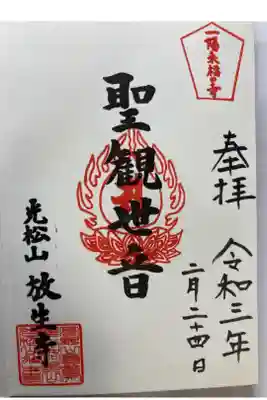 一陽来福の寺
奉拝
令和三年
二月二十四日
聖観世音
光松山 放生寺